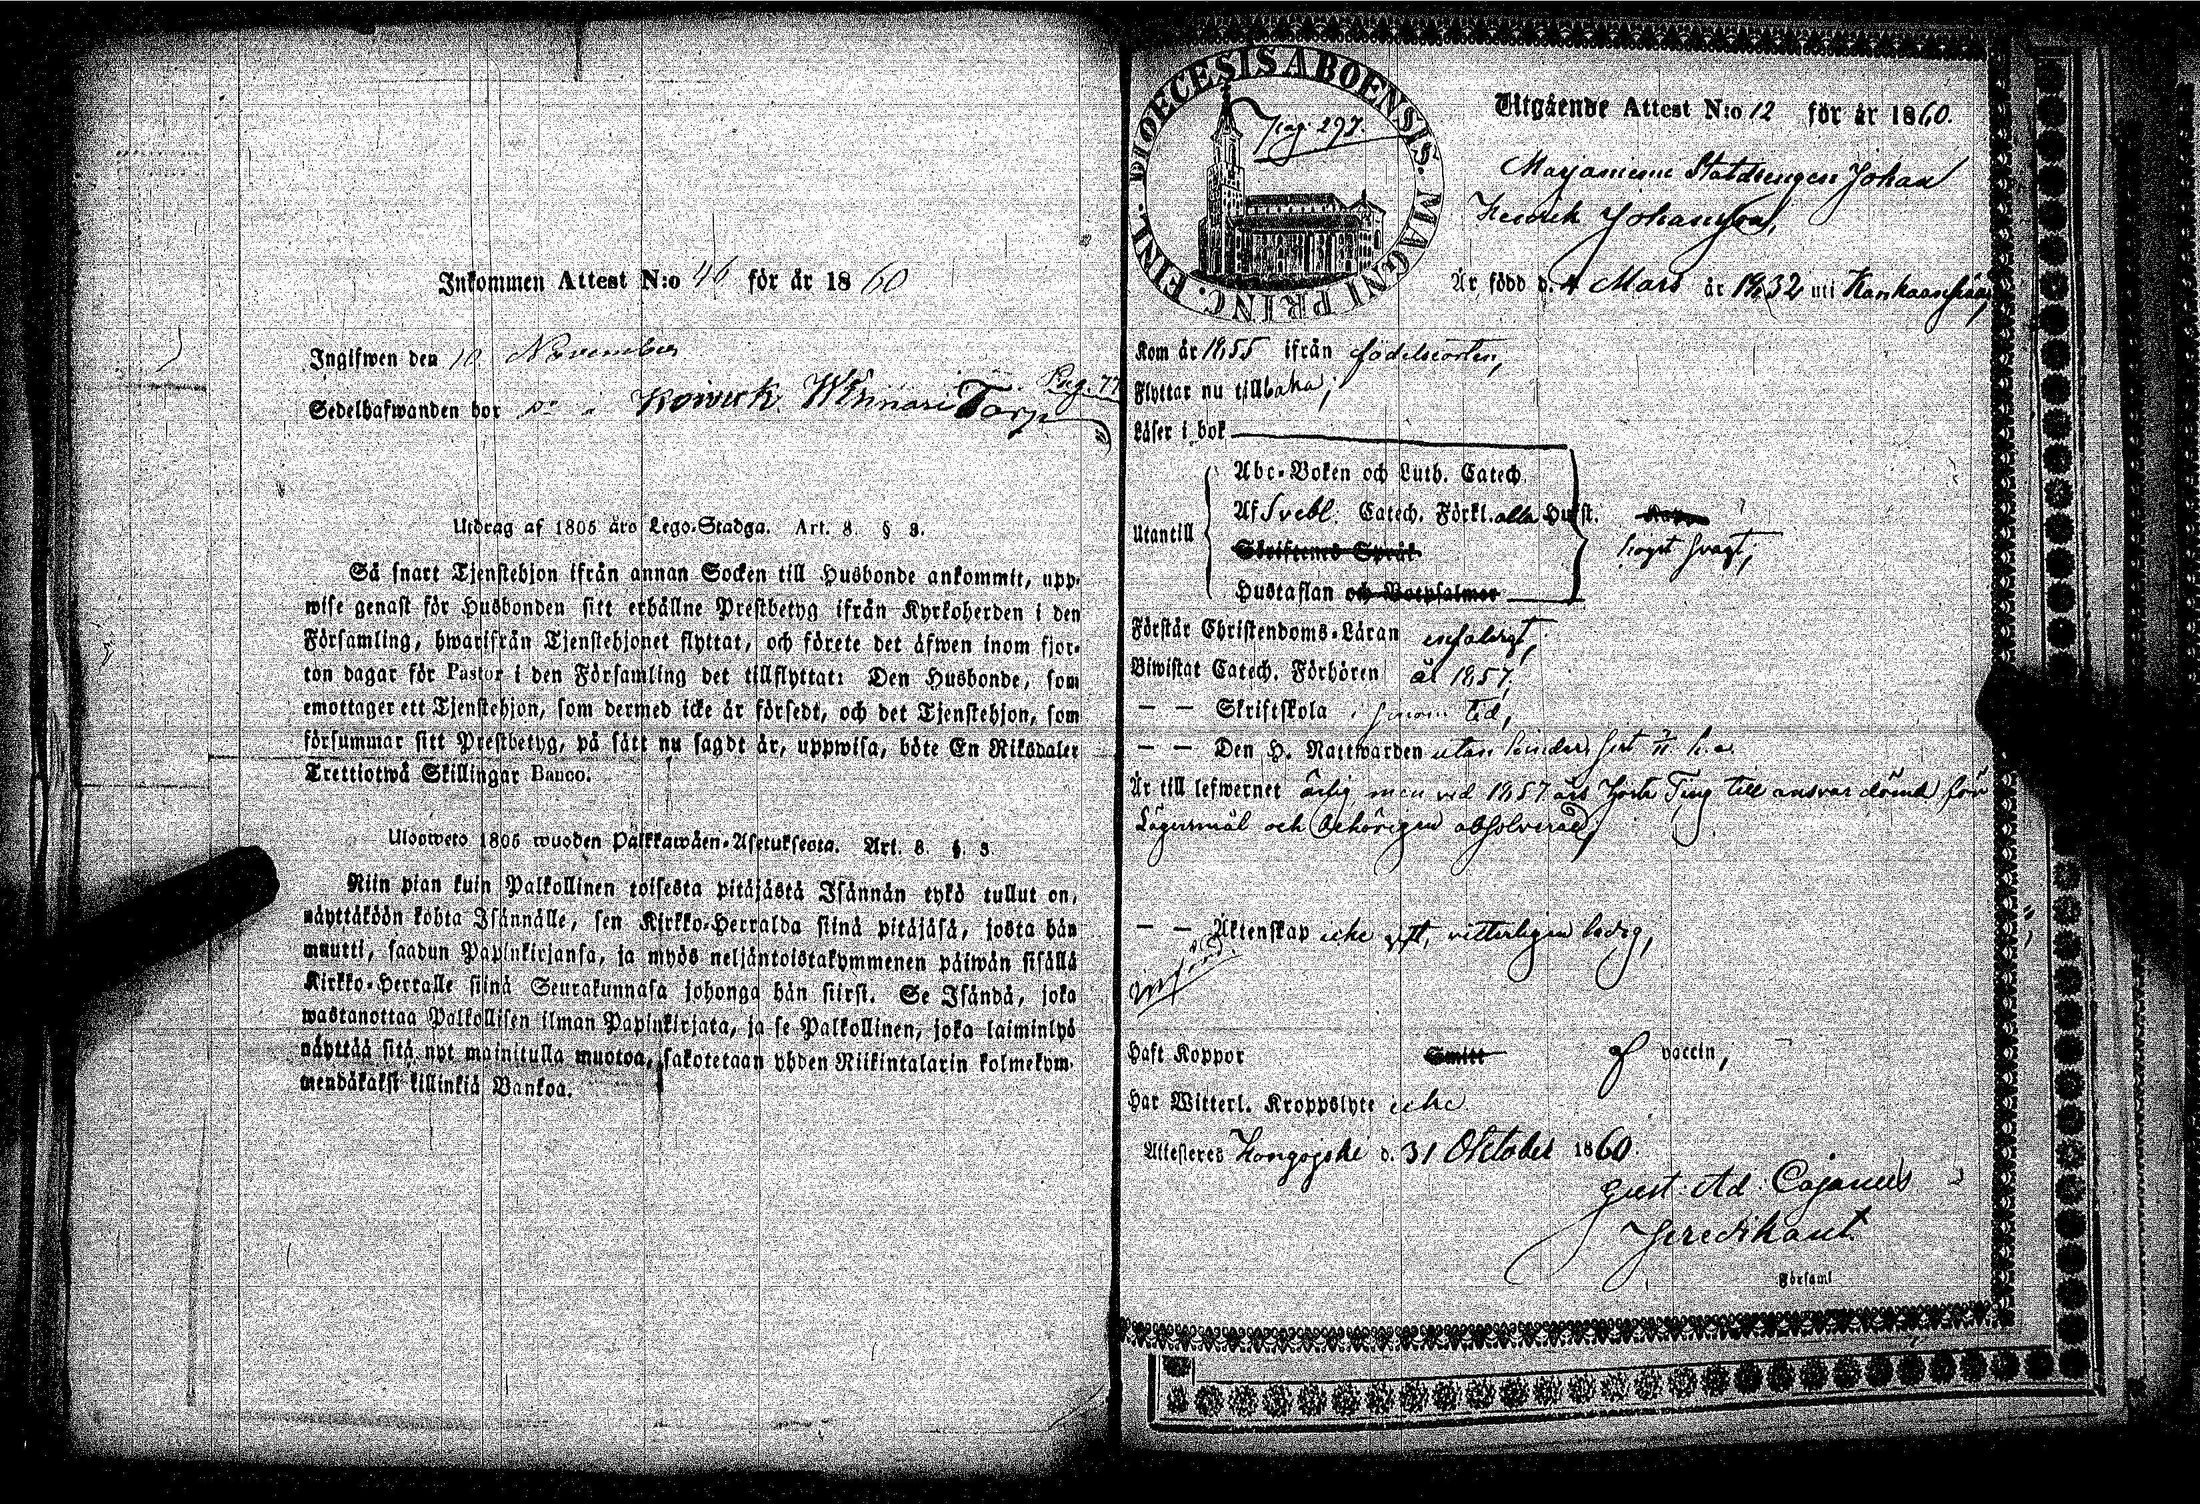 Inkommen Attest N:o 46 för år 1860
Ingifwen den 10 November
Pag. 77
Sedelhafwanden bor Torp
Utdrag af 1805 års Lego-Stadga. Art. 8. § 3.
Så snart Tjenstehjon ifrån annan Socken till Husbonde ankommit, upp-
wise genast för Husbonden sitt erhållne Prestbetyg ifrån Kyrkoherden i den
Församling, hwarifrån Tjenstehjonet flyttat, och förete det äfwen inom fjor-
ton dagar för Pastor i den Församling det tillflyttat: Den Husbonde, som
emottager ett Tjenstehjon, som dermed icke är försedt, och det Tjenstehjon, som
försummar sitt Prestbetyg, på sätt nu sagdt är, uppwisa, böte En Riksdaler
Trettiotwå Skillingar Banco.
Ulosweto 1805 wuoden Palkkawäen-Asetuksesta. Art. 8. §. 3.
Niin pian kuin Palkollinen toisesta pitäjästä Isännän tykö tullut on,
näyttäköön kohta Isännälle, sen Kirkko-Herralda siinä pitäjäsä, josta hän
muutti, saadun Papinkirjansa, ja myös neljäntoistakymmenen päiwän sisällä
Kirkko-Herralle siinä Seurakunnasa johonga hän siirsi. Se Isändä, joka
wastanottaa Palkollisen ilman Papinkirjata, ja se Palkollinen, joka laiminlyö
näyttää sitä nyt mainitulla muotoa, sakotetaan yhden Riikintalarin kolmekym-
mendäkaksi killinkiä Bankoa.
DIOECESIS ABOENSIS. MAGNI PRINC. FINL.
Pag. 297.
Utgående Attest N:o 12 för år 1860.
Statdrengen Johan
Henrik Johansson,
Är född d. 4 Mars år 1832 uti Kankaanpää,
Kom år 1855 ifrån födelseorten,
Flyttar nu tillbaka;
Läser i bok
Utantill
Abc-Boken och Luth. Catech.
Af Svebl. Catech. Förkl. alla Hufst.
Skriftenes Språk
Hustaflan och Botpsalmer
högst svagt,
Förstår Christendoms-Läran enfaldigt,
Biwistat Catech. Förhören år 1857,
— — Skriftskola i sinom tid,
— — Den H. Nattwarden utan hinder,
Är till lefwernet ärlig men vid 1857 års Höste Ting till answar dömd för
Lägersmål och behörigen absolverad,
— — Äktenskap icke gift, vetterligen ledig,
Haft Koppor Smitt af vaccin,
Har Witterl. Kroppslyte icke
Attesteras Hongojoki d. 31 Oktober 1860.
Gust. Ad. Cajanus
Predikant
Församl